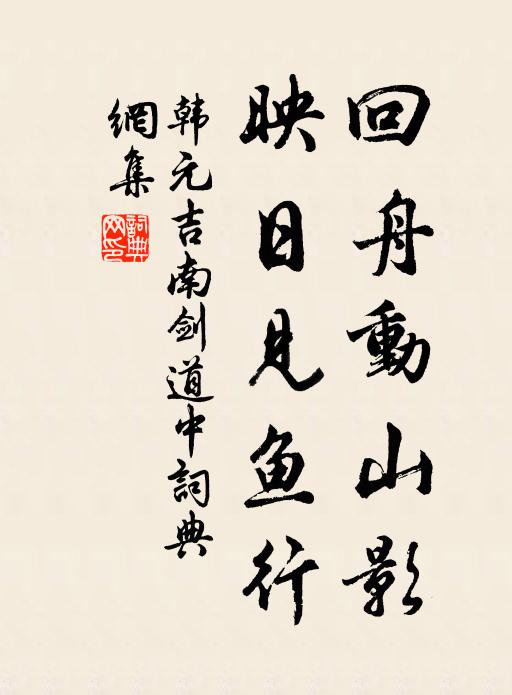 回舟動山影
映日見魚行
韩元吉南剑道中詞典
網集
詞典
网印